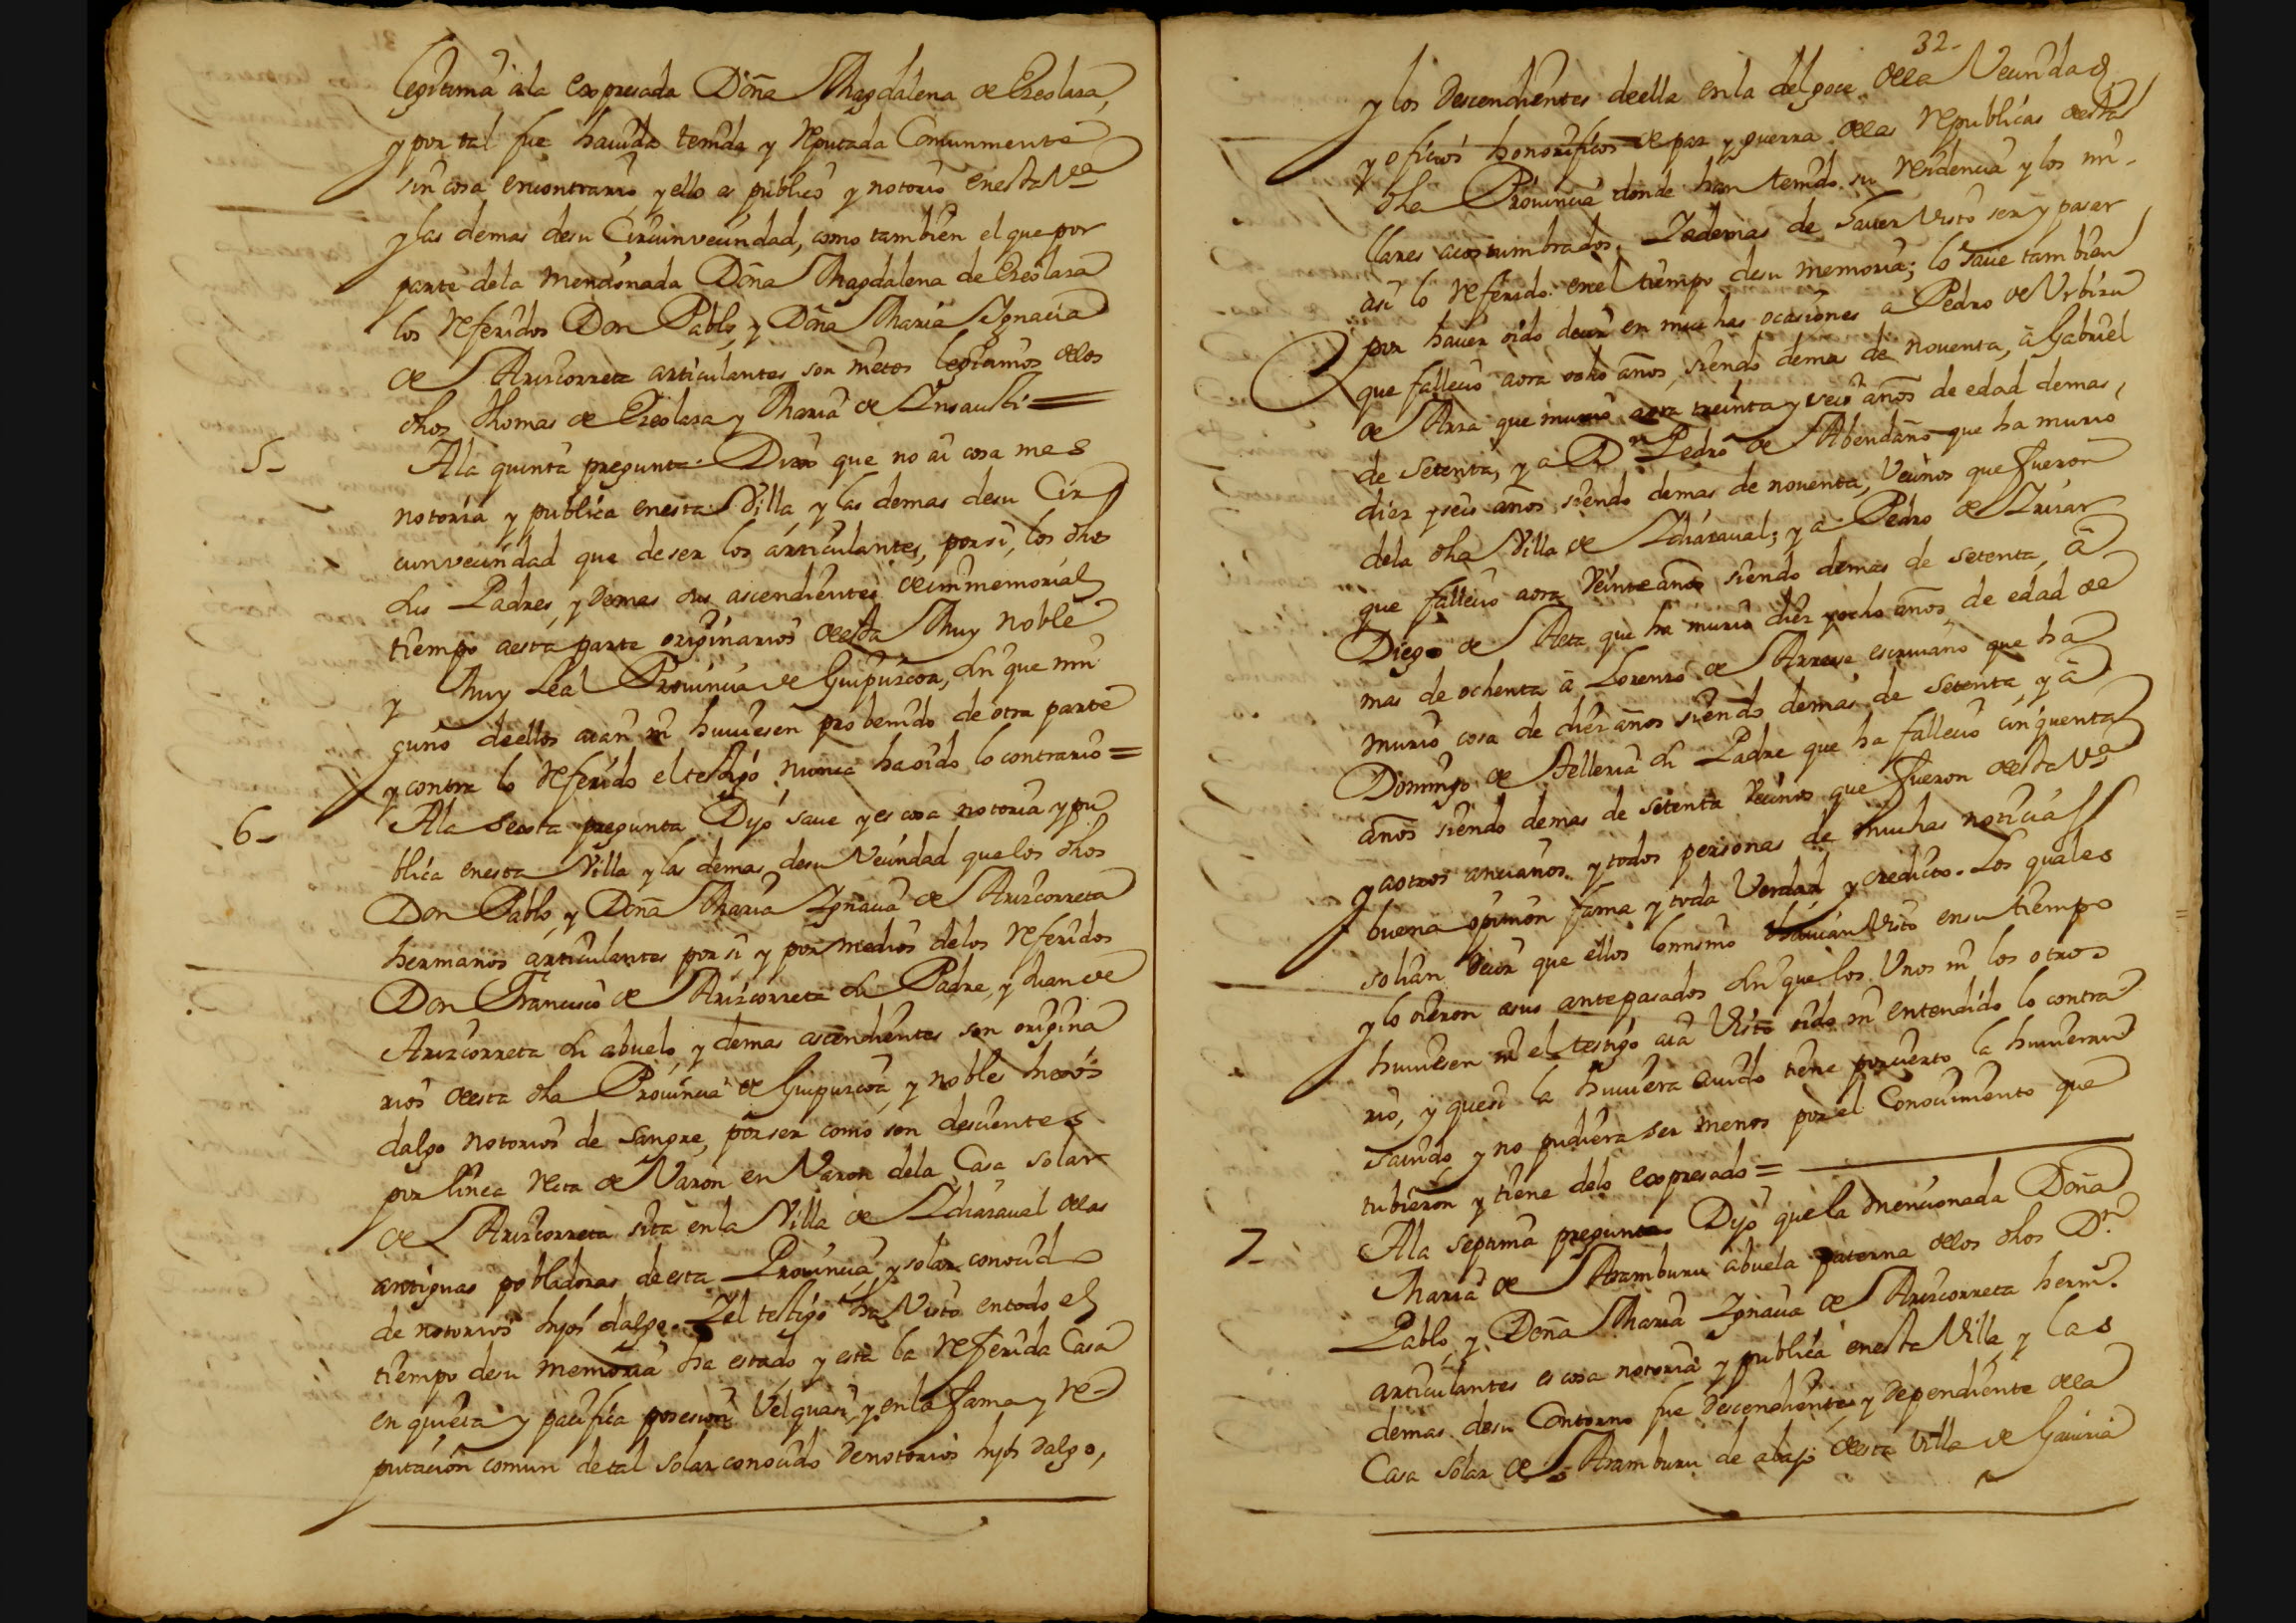 legitima ala expresada Doña Magdalena de Ezeolaza,
y por tal fue hauida tenida y Reputada Comunmente
sin cosa encontrario, y ello es publico y notorio enesta Va
y las demas desu Circunvecindad, como tambien el que por
parte dela mencionada Doña Magdalena de Ezeolaza
los Referidos Don Pablo, y Doña Maria Ignacia
de Arizcorreta articulantes son nietos legitimos delos
dhos Thomas de Ezeolaza y Maria de Insausti =
5- Ala quinta pregunta Dixo que no ai cosa mas
notoria y publica enesta Villa y las demas desu Cir
cunvecindad que deser los articulantes, porsi, los dhos
sus Padres, y demas sus ascendientes deimmemorial
tiempo aesta parte originarios deesta Muy Noble
y Muy Leal Prouincia de Guipuzcoa, sin que nin
guno deellos aian ni huuiesen probenido de otra parte
y contra lo Referido el testigo nunca haoido lo contrario =
6- Ala sexta pregunta Dijo saue y es cosa notoria y pu
blica enesta Villa y las demas desu Vecindad quelos dhos
Don Pablo, y Doña Maria Ignacia de Arizcorreta
hermanos articulantes por si y por medios delos Referidos
Don Francisco de Arizcorreta su Padre, y Juan de
Arizcorreta su abuelo, y demas ascendientes son origina
rios deesta dha Prouincia de Guipuzcoa, y nobles hixos
dalgo notorios de sangre, por ser como son descientes
por linea Recta de Varon en Varon dela Casa solar
de Arizcorreta sita en la Villa de Ichasaual delas
antiguas pobladoras de esta Prouincia y solar conocido
de notorios hijos dalgo. Iel testigo ha Visto entodo el
tiempo desu memoria ha estado y esta la Referida Casa
en quieta y pacifica posesion Velquasi, y en la fama y Re-
putacion comun de tal Solar conocido denotorios hijos dalgo,
32-
y los Descendientes deella en la del goce dela Vecindad
y oficios honorificos de paz y guerra delas Republicas deesta
dha Prouincia donde han tenido su Residencia y los mi-
llares acostumbrados. Iademas de hauer Visto ser y pasar
asi lo Referido enel tiempo desu memoria; lo saue tambien
por hauer oido decir en muchas ocasiones a Pedro de Urbizu
que fallecio aora ocho años, siendo demas de nouenta, â Gabriel
de Arza que murio aora treinta y seis años de edad demas,
de Setenta, y a Dn Pedro de Abendaño que ha murio
diez y seis años siendo demas de nouenta, Vecinos que fueron
dela dha Villa de Ichasaual; y a Pedro de Irizar
que fallecio aora Veinte años siendo demas de setenta, â
Diego de Aeta que ha murio diez y ocho años, de edad de
mas de ochenta â Lorenzo de Arrese escriuano que ha
murio cosa de diez años siendo demas de setenta y â
Domingo de Telleria su Padre que ha fallecio cinquenta
años siendo demas de setenta Vecinos que fueron deesta Va
y aotros ancianos, y todos personas de muchas noticias
buena opinion fama y toda Verdad y credicto. Los quales
solian decir que ellos lomismo hauian Visto ensu tiempo
y lo oieron asus antepasados sin que los Unos ni los otros
huuiesen ni el testigo aia Visto oido ni entendido lo contra
rio, y quesi la huuiera auido tiene porcierto la huuieran
sauido y no pudiera ser menos por el Conocimiento que
tubieron y tiene delo expresado =
7- Ala septima pregunta Dijo que la mencionada Doña
Maria de Aramburu abuela paterna delos dhos Dn
Pablo, y Doña Maria Ignacia de Arizcorreta herms.
articulantes es cosa notoria y publica enesta Villa, y las
demas desu Contorno fue Descendiente y dependiente dela
Casa Solar de Aramburu de abajo deesta Villa de Gauiria